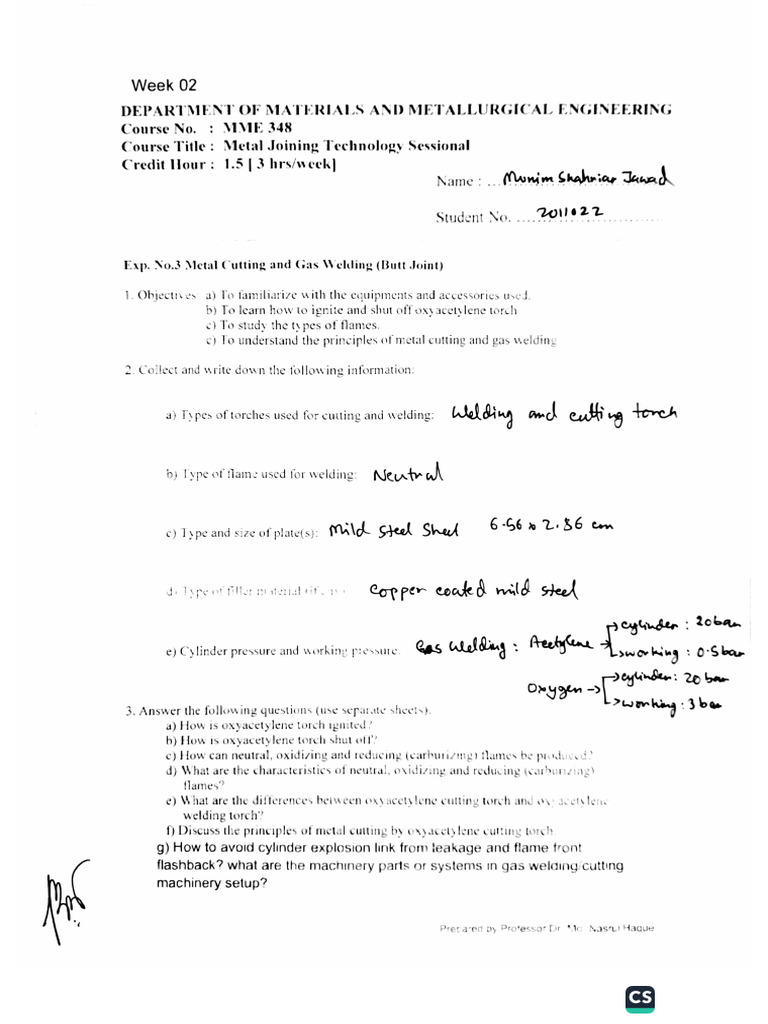 Week 02
DEPARTMENT OF MATERIALS AND METALLURGICAL ENGINEERING
Course No. : MME 348
Course Title : Metal Joining Technology Sessional
Credit Hour : 1.5 [ 3 hrs/week]
Name : ... Munim Shahriar Jawad
Student No. ... 2011022
Exp. No.3 Metal Cutting and Gas Welding (Butt Joint)
1. Objectives: a) To familiarize with the equipments and accessories used.
b) To learn how to ignite and shut off oxyacetylene torch
c) To study the types of flames.
c) To understand the principles of metal cutting and gas welding
2. Collect and write down the following information:
a) Types of torches used for cutting and welding: Welding and cutting torch
b) Type of flame used for welding: Neutral
c) Type and size of plate(s): Mild Steel Sheet 6.56 x 2.86 cm
d) Type of filler material Copper coated mild steel
e) Cylinder pressure and working pressure. Gas Welding : Acetylene → cylinder : 20 bar
→ working : 0.5 bar
Oxygen → cylinder : 20 bar
→ working : 3 bar
3. Answer the following questions (use separate sheets).
a) How is oxyacetylene torch ignited?
b) How is oxyacetylene torch shut off?
c) How can neutral, oxidizing and reducing (carburizing) flames be produced?
d) What are the characteristics of neutral, oxidizing and reducing (carburizing)
flames?
e) What are the differences between oxyacetylene cutting torch and oxyacetylene
welding torch?
f) Discuss the principles of metal cutting by oxyacetylene cutting torch
g) How to avoid cylinder explosion link from leakage and flame front
flashback? what are the machinery parts or systems in gas welding/cutting
machinery setup?
Prepared by Professor Dr. Md. Nasrul Haque
CS